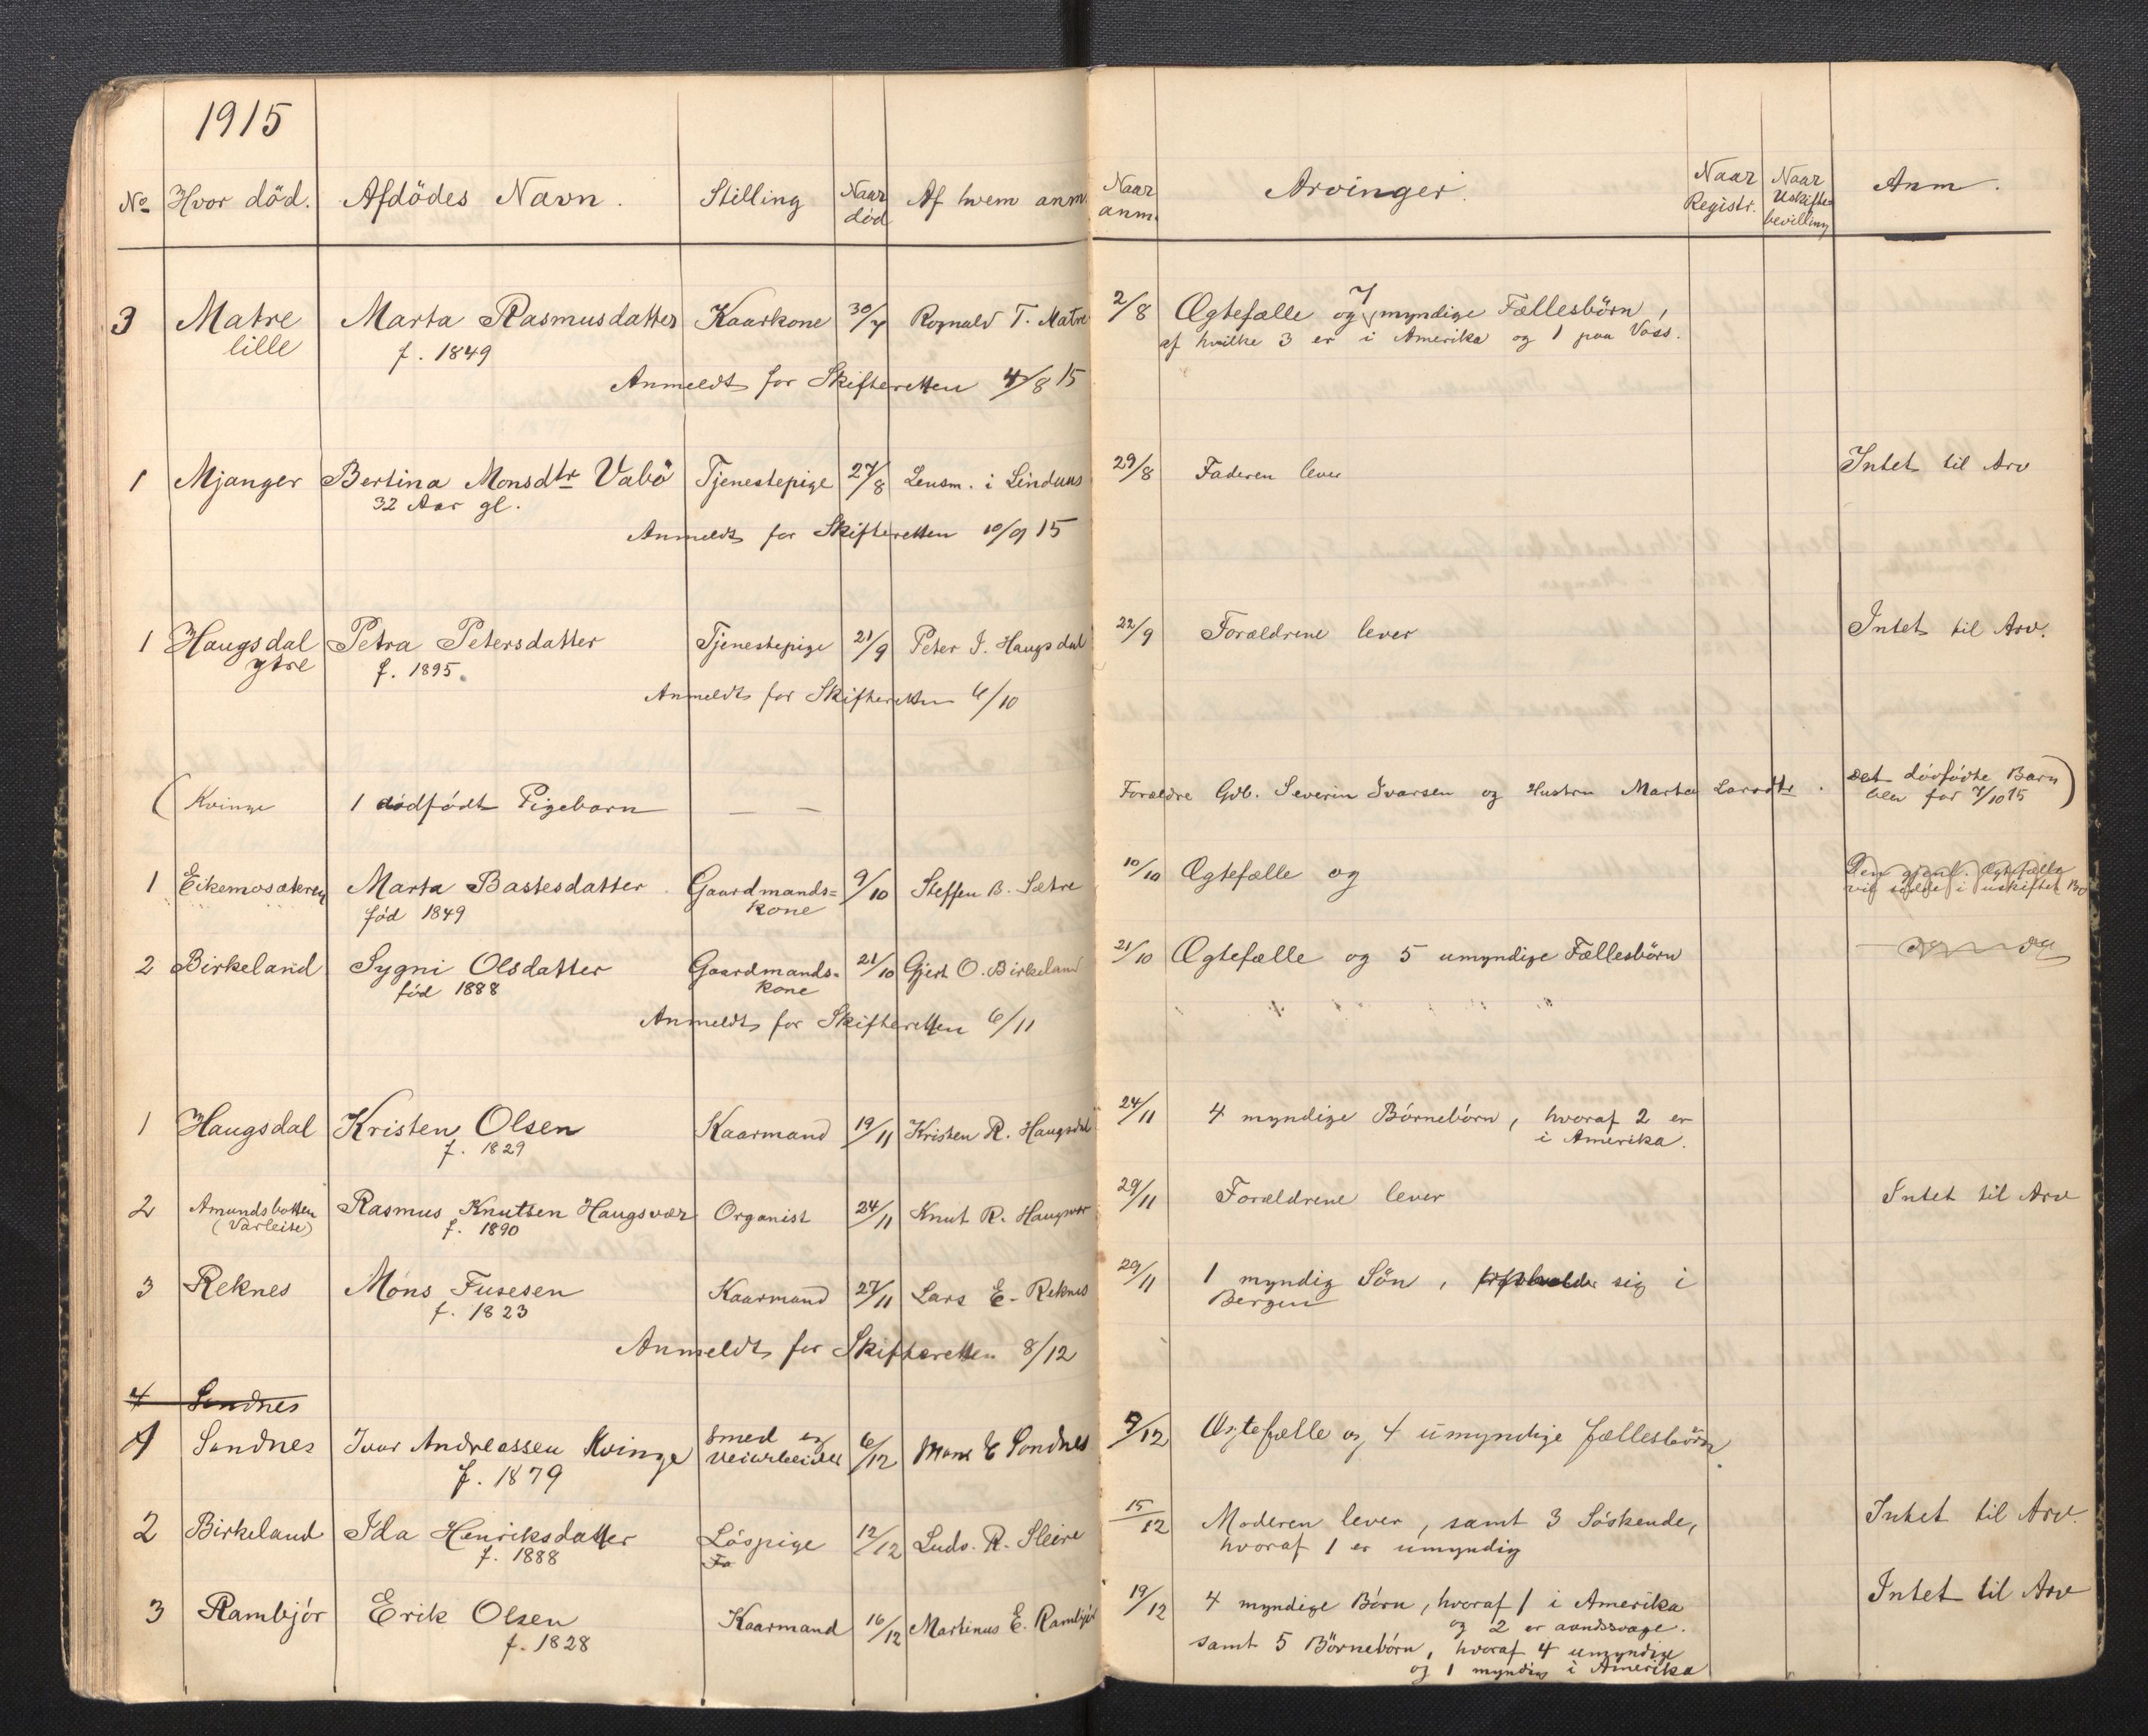 1915
No Hvor död. Afdödes Navn. Stilling Naar död Af hvem anm. Naar anm. Arvinger. Naar Registr. Naar Uskifte bevilling Anm.
3 Matre Marta Rasmusdatter Kaarkone 30/7 Rognald T. Matre 2/8 Ægtefælle og 7 myndige Fællesbörn,
lille f. 1849 af hvilke 3 er i Amerika og 1 paa Voss.
Anmeldt for Skifteretten 4/8 15
1 Mjanger Bertina Monsdtr Vabö Tjenestepige 27/8 Lensm. i Lindaas 29/8 Faderen lever Intet til Arv
32 Aar gl.
Anmeldt for Skifteretten 10/9 15
1 Haugsdal Petra Petersdatter Tjenestepige 21/9 Peter J. Haugsdal 22/9 Forældrene lever Intet til Arv.
ytre f. 1895.
Anmeldt for Skifteretten 6/10
( Kvinge 1 dödfödt Pigebarn — — Forældre Gdb. Severin Ivarsen og Hustru Marta Larsdtr. Det dödfödte Barn
blev før 7/10 15 )
1 Eikemosæteren Marta Bastesdatter Gaardmands= 9/10 Steffen B. Sætre 10/10 Ægtefælle og Den gjenl. Ægtefælle
född 1849 kone vil sidde i uskiftet Bo
2 Birkeland Sygni Olsdatter Gaardmands= 21/10 Gjert O. Birkeland 21/10 Ægtefælle og 5 umyndige Fællesbörn
född 1888 kone
Anmeldt for Skifteretten 6/11
1 Haugsdal Kristen Olsen Kaarmand 19/11 Kristen R. Haugsdal 24/11 4 myndige Börnebörn, hvoraf 2 er
f. 1829 i Amerika.
2 Amundsbotten Rasmus Knutsen Haugsvær Organist 24/11 Knut R. Haugsvær 29/11 Forældrene lever Intet til Arv
(Varleite) f. 1890
3 Reknes Mons Fusesen Kaarmand 27/11 Lars E. Reknes 29/11 1 myndig Sön, opholder sig i
f. 1823 Bergen
Anmeldt for Skifteretten 8/12
4 Sandnes
1 Sandnes Ivar Andreassen Kvinge Smed og 6/12 Mons E Sandnes 9/12 Ægtefælle og 4 umyndige fællesbörn.
f. 1879 Veiarbeider
2 Birkeland Ida Henriksdatter Löspige 12/12 Ludv. R. Sleire 15/12 Moderen lever, samt 3 Söskende, Intet til Arv.
f. 1888 Fo hvoraf 1 er umyndig
3 Rambjör Erik Olsen Kaarmand 16/12 Martinus E. Rambjör 19/12 4 myndige Börn, hvoraf 1 i Amerika Intet til Arv
f. 1828 og 2 er aandssvage.
samt 5 Börnebörn, hvoraf 4 umyndige
og 1 myndig i Amerika